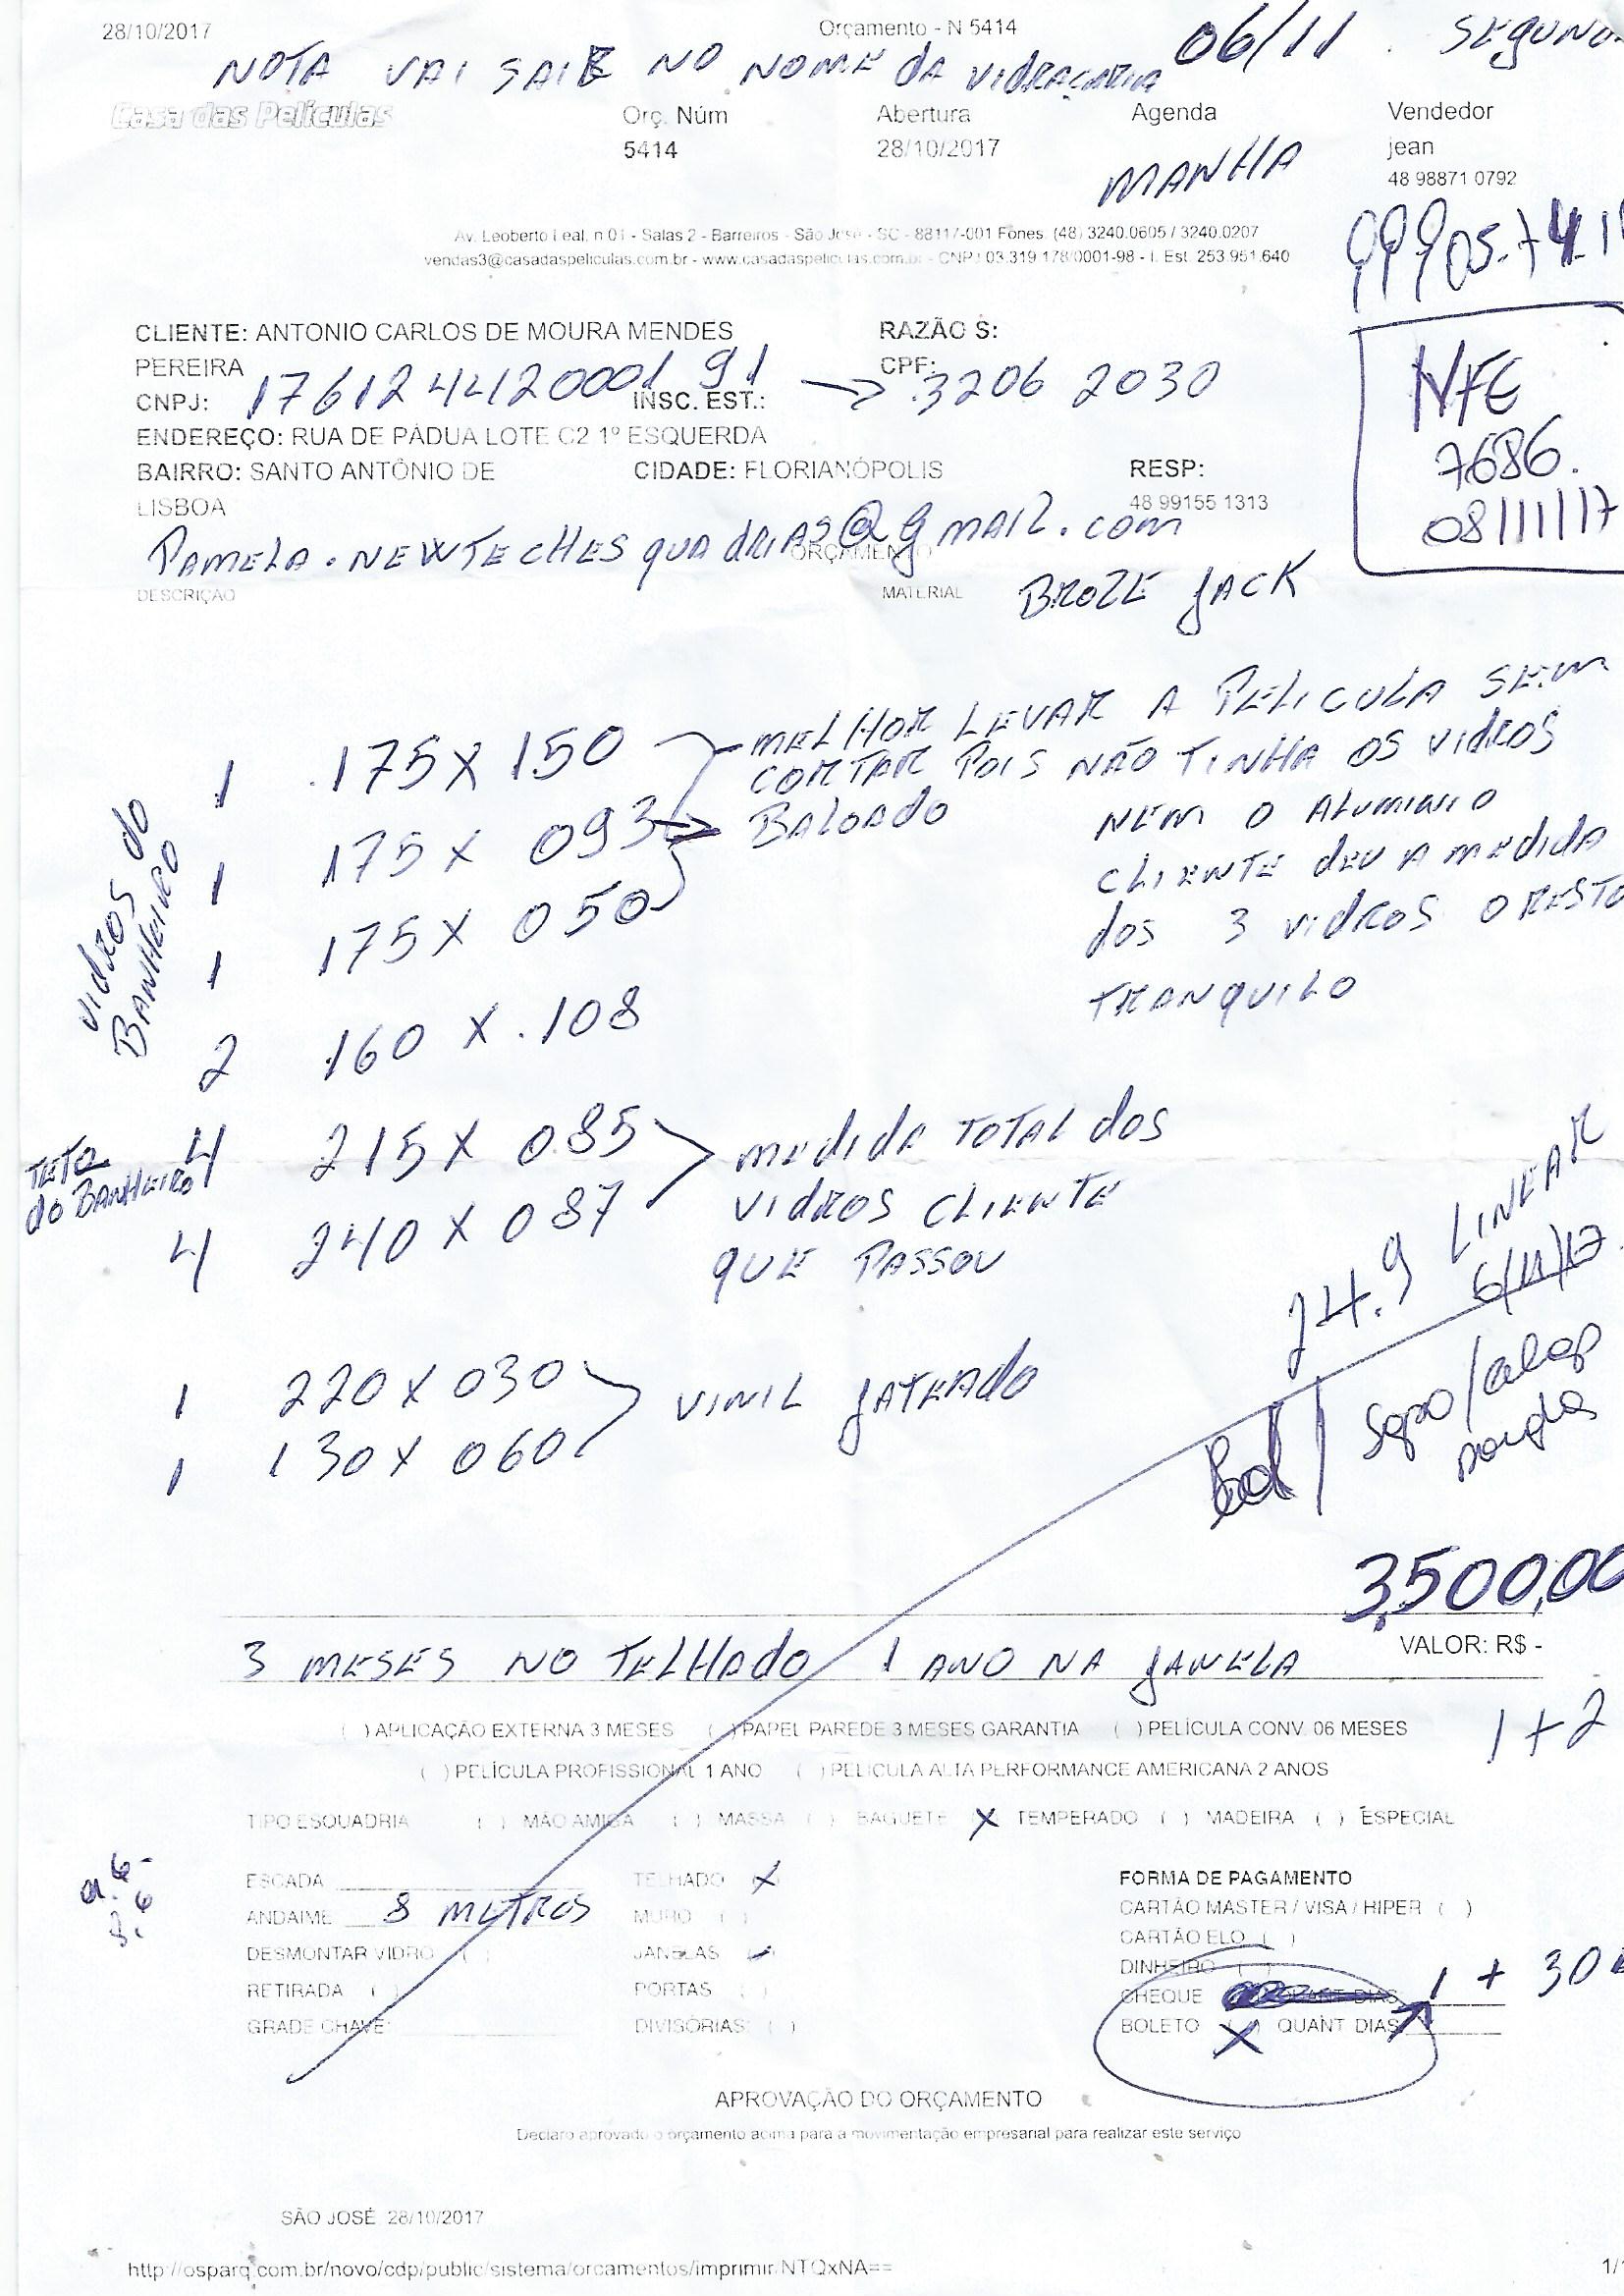 28/10/2017 Orçamento - N 5414
NOTA VAI SAIR NO NOME DA VIDRAÇARIA 06/11 SEGUND
Casa das Películas Orç. Núm Abertura Agenda Vendedor
5414 28/10/2017 MANHA jean
48 98871 0792
Av. Leoberto Leal, n 01 - Salas 2 - Barreiros - São José - SC - 88117-001 Fones: (48) 3240.0605 / 3240.0207
vendas3@casadaspeliculas.com.br - www.casadaspeliculas.com.br - CNPJ 03.319.178/0001-98 - I. Est. 253.951.640
99905.74.1
CLIENTE: ANTONIO CARLOS DE MOURA MENDES RAZÃO S:
PEREIRA CPF:
CNPJ: 1761244120001 91 INSC. EST.: → 3206 2030
ENDEREÇO: RUA DE PÁDUA LOTE C2 1º ESQUERDA
BAIRRO: SANTO ANTÔNIO DE CIDADE: FLORIANÓPOLIS RESP:
LISBOA 48 99155 1313
NFE
7686.
08/11/17
PAMELA.NEWTECHESQUADRIAS@gMAIL.com
ORÇAMENTO
DESCRIÇÃO MATERIAL BROZE JACK
VIDROS do BANHEIRO
1 175 X 150 MELHOR LEVAR A PELICULA SEM
CORTAR POIS NÃO TINHA OS VIDROS
1 175 X 093 → BALOADO NEM O ALUMINIO
CLIENTE DEU A MEDIDA
1 175 X 050 dos 3 VIDROS O RESTO
TRANQUILO
2 160 X .108
TETO do BANHEIRO
4 215 X 085 MEDIDA TOTAL DOS
VIDROS CLIENTE
4 240 X 087 QUE PASSOU
24.9 LINEAR
6/11/17
1 220 X 030 VINIL JATEADO
1 130 X 060
3,500,00
VALOR: R$ -
3 MESES NO TELHADO 1 ANO NA JANELA
1+2
( ) APLICAÇÃO EXTERNA 3 MESES ( ) PAPEL PAREDE 3 MESES GARANTIA ( ) PELÍCULA CONV. 06 MESES
( ) PELÍCULA PROFISSIONAL 1 ANO ( ) PELICULA ALTA PERFORMANCE AMERICANA 2 ANOS
TIPO ESQUADRIA ( ) MÃO AMIGA ( ) MASSA ( ) BAGUETE X TEMPERADO ( ) MADEIRA ( ) ESPECIAL
ESCADA TELHADO X FORMA DE PAGAMENTO
ANDAIME 8 METROS MURO ( ) CARTÃO MASTER / VISA / HIPER ( )
DESMONTAR VIDRO ( ) JANELAS CARTÃO ELO ( )
RETIRADA ( ) PORTAS ( ) DINHEIRO ( )
GRADE CHAVE: DIVISÓRIAS ( ) CHEQUE QUANT DIAS 1 + 30
BOLETO (X) QUANT DIAS
APROVAÇÃO DO ORÇAMENTO
Declaro aprovado o orçamento acima para a movimentação empresarial para realizar este serviço
SÃO JOSÉ 28/10/2017
http://osparq.com.br/novo/cdp/public/sistema/orcamentos/imprimir/NTQxNA== 1/